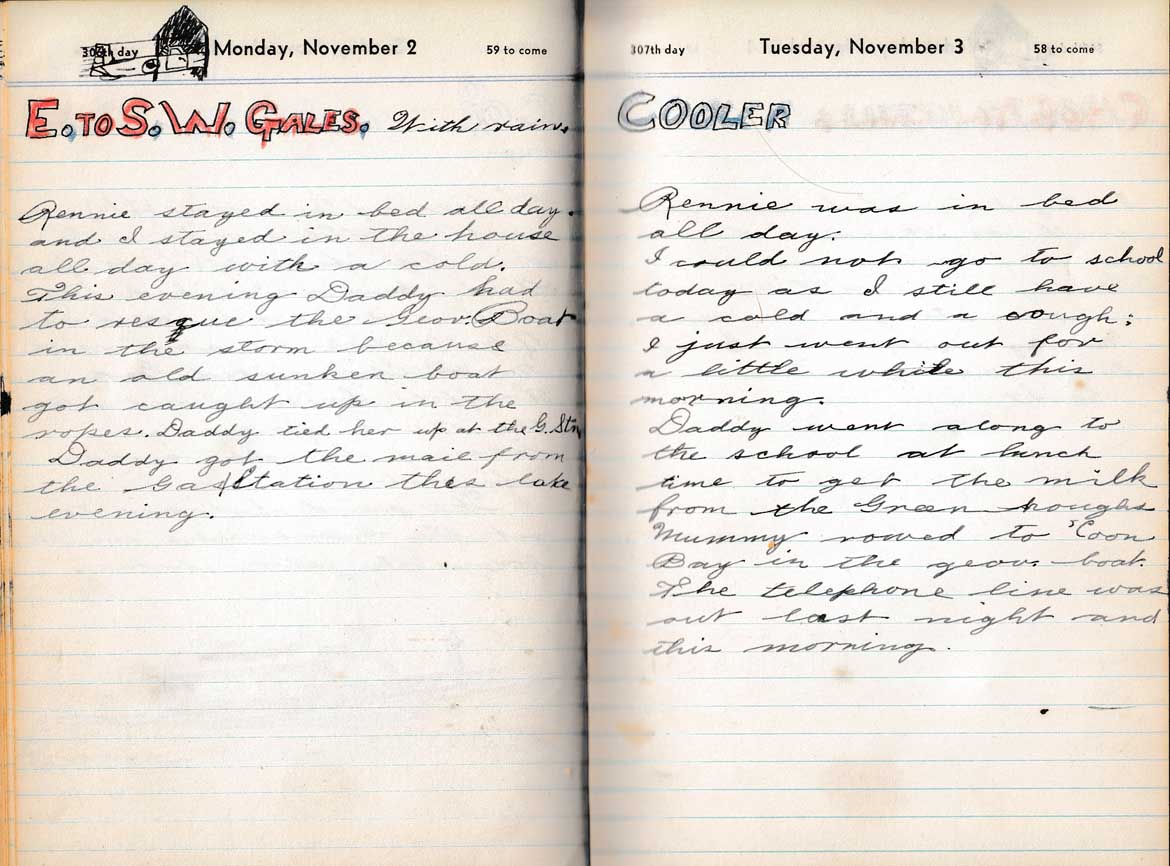 306th day Monday, November 2 59 to come
E. TO S. W. GALES. With rain.
Rennie stayed in bed all day.
and I stayed in the house
all day with a cold.
This evening Daddy had
to resque the Geov. Boat
in the storm because
an old sunken boat
got caught up in the
ropes. Daddy tied her up at the G. Stn
Daddy got the mail from
the Gas Station this late
evening.
307th day Tuesday, November 3 58 to come
COOLER
Rennie was in bed
all day.
I could not go to school
today as I still have
a cold and a cough;
I just went out for
a little while this
morning.
Daddy went along to
the school at lunch
time to get the milk
from the Green houghs
Mummy rowed to 'Coon
Bay in the geov. boat.
The telephone line was
out last night and
this morning.